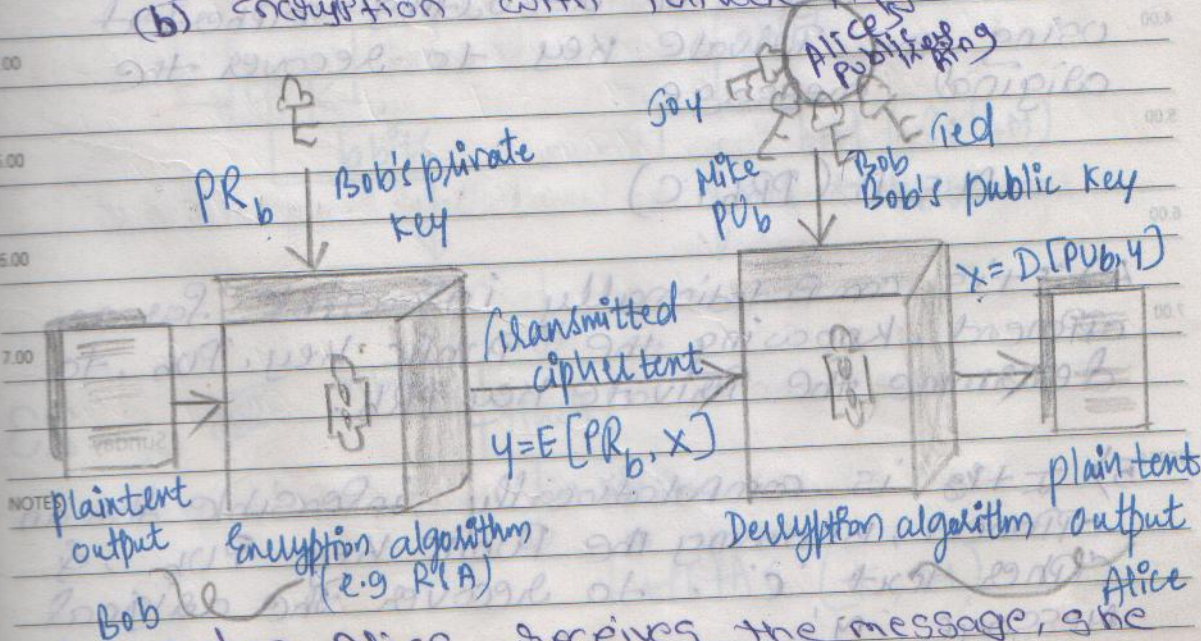 (b) Encryption with
Alice's
public
Ring
Joy
Ted
Mike
Bob
PRb
Bob's private
key
PUb
Bob's public key
X = D[PUb, y]
Transmitted
ciphertent
y = E[PRb, X]
plaintent
output
Encryption algorithm
(e.g RSA)
Decryption algorithm
plain tent
output
Bob
Alice
Alice receives the message, she
5.00
6.00
7.00
NOTE